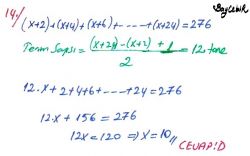 BayÇINAR
14,) (x+2)+(x+4)+(x+6)+-----+(x+24)=276
Terim Sayısı = ((x+24)-(x+2))/2 + 1 = 12 tane
12.x + 2+4+6+-----+24=276
12x + 156 = 276
12x = 120 => x = 10,,
CEVAP:D